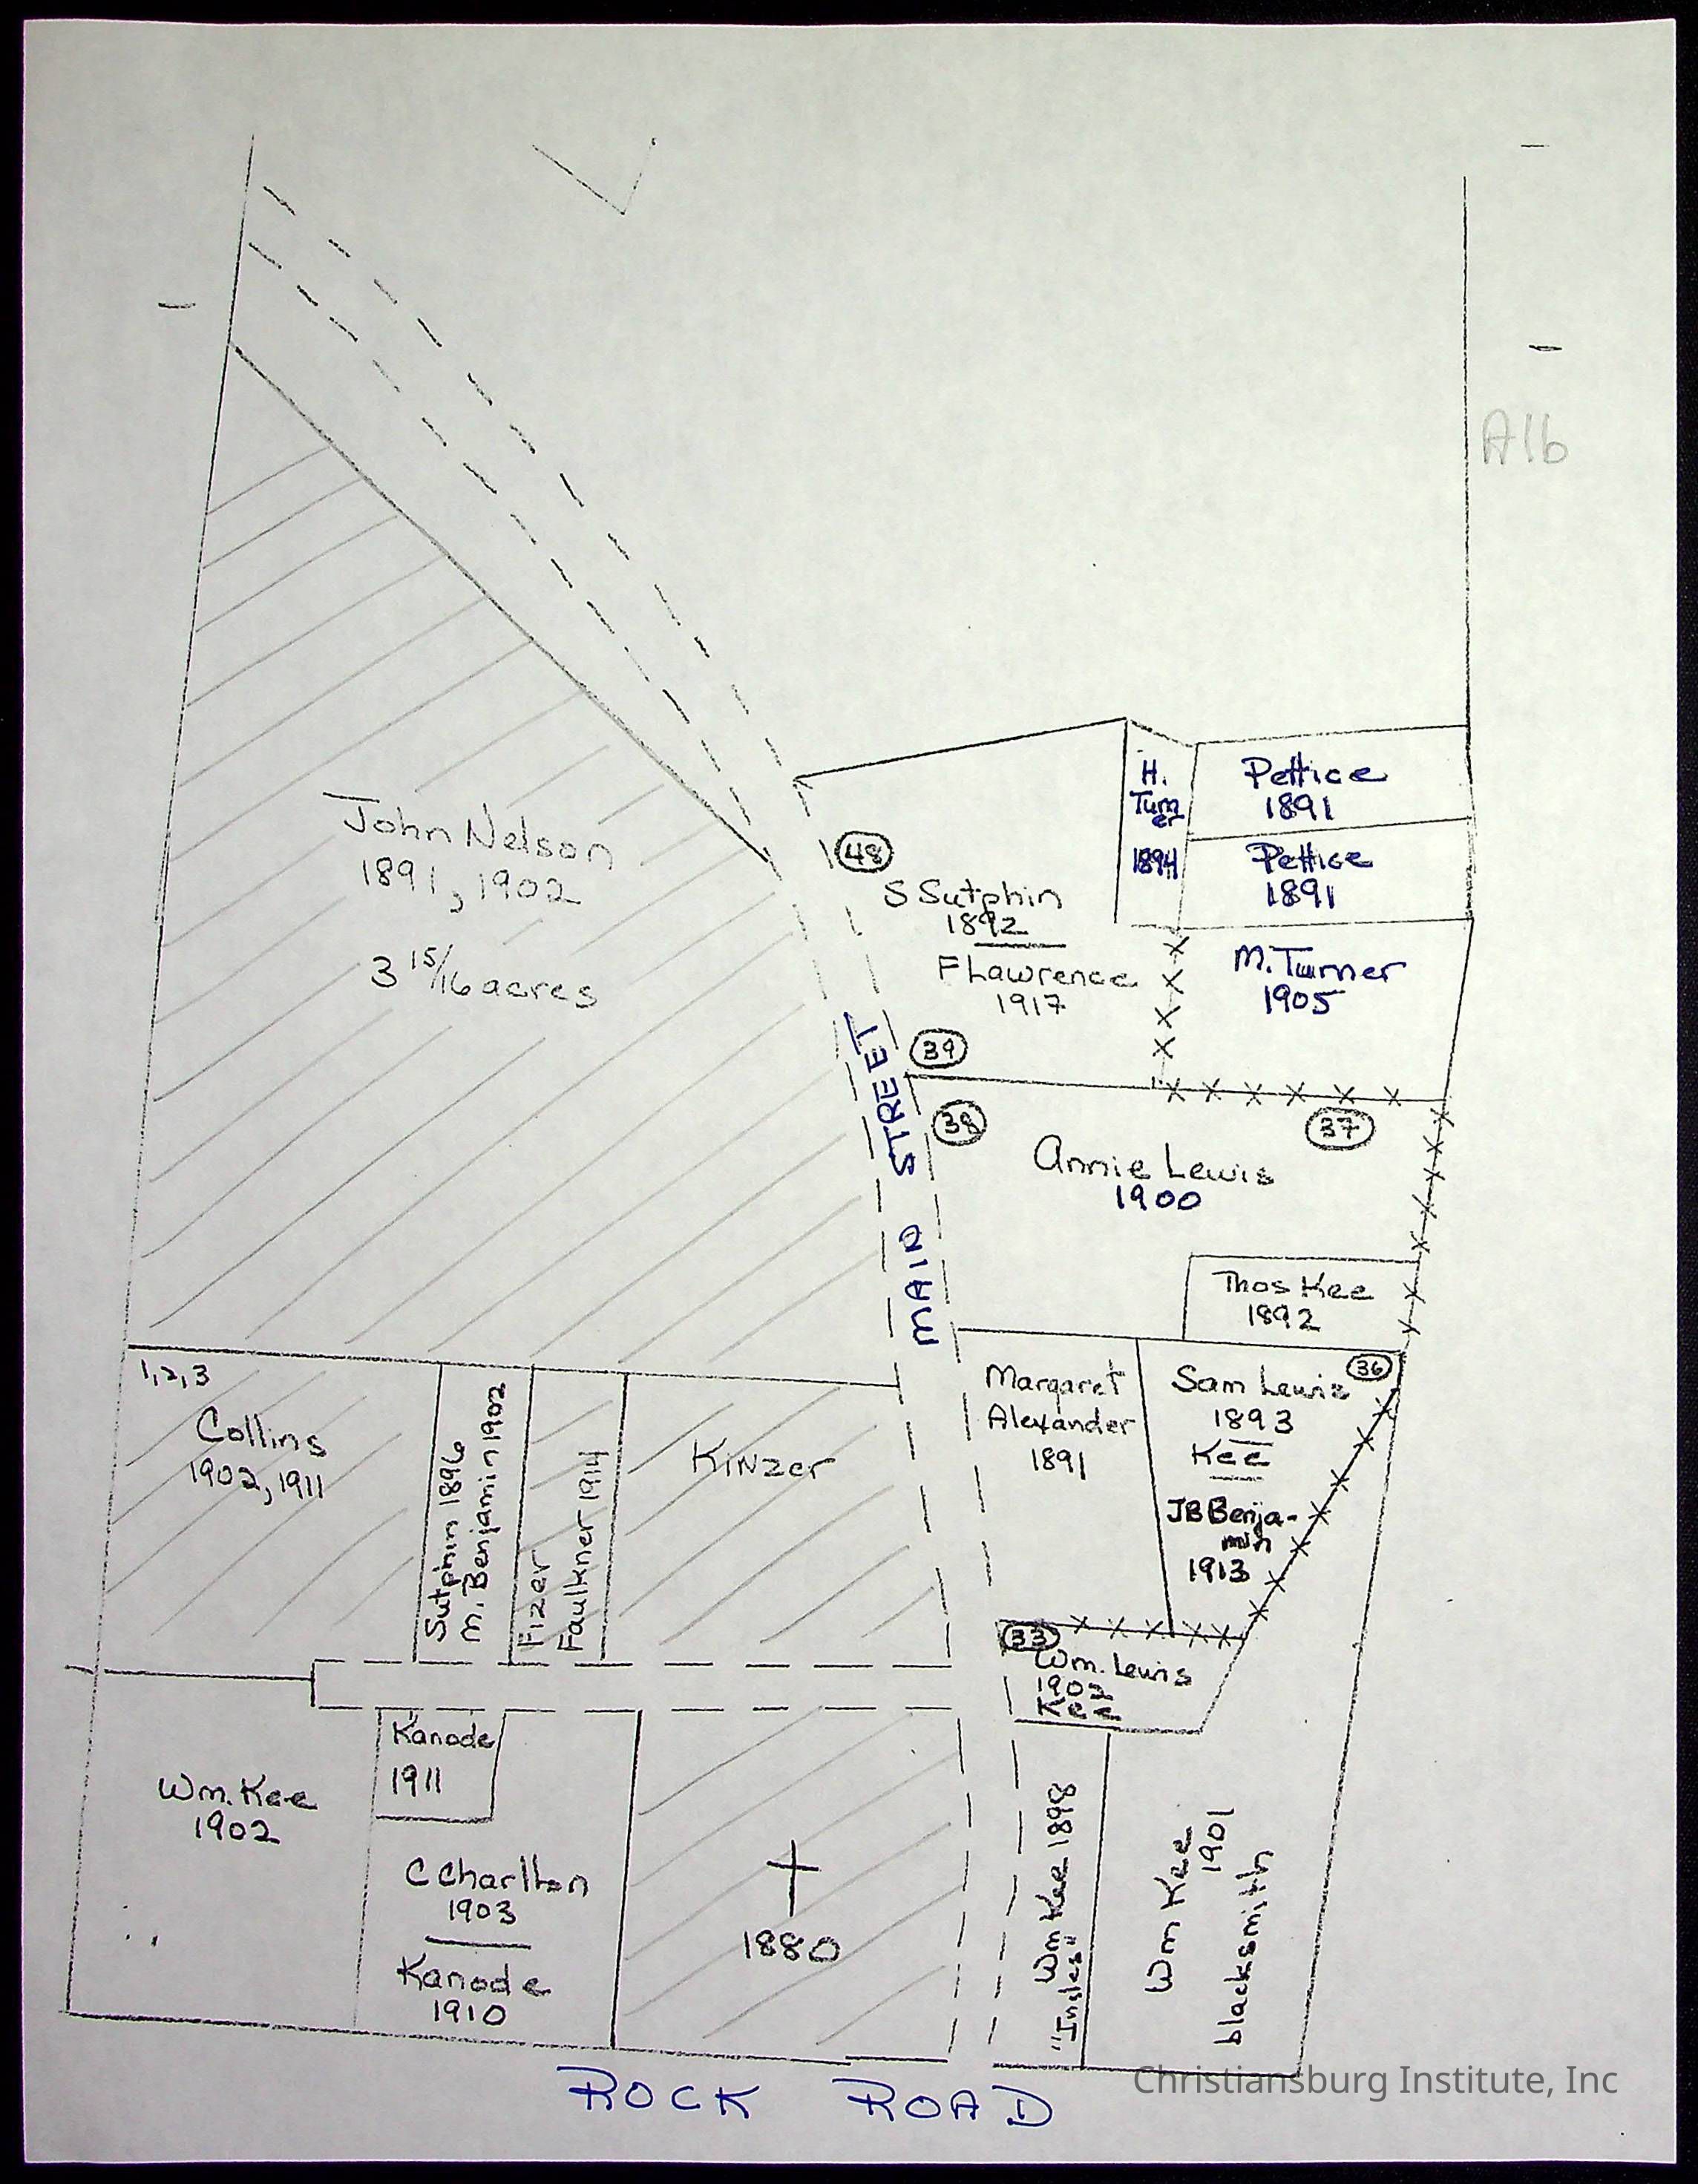 A16
H.
Turn
er
1894
Pettice
1891
Pettice
1891
John Nelson
1891, 1902
3 15/16 acres
48
S Sutphin
1892
F Lawrence
1917
M. Turner
1905
39
MAIN STREET
38
37
Annie Lewis
1900
Thos Kee
1892
1,2,3
Collins
1902, 1911
Sutphin 1896
M. Benjamin 1902
Fizer
Faulkner 1914
Kinzer
Margaret
Alexander
1891
36
Sam Lewis
1893
Kee
JB Benja-
min
1913
33
Wm. Lewis
Kee
Kanode
1911
Wm. Kee
1902
C Charlton
1903
Kanode
1910
1880
Wm Kee 1898
"Ingles"
Wm Kee
1901
blacksmith
ROCK ROAD
Christiansburg Institute, Inc